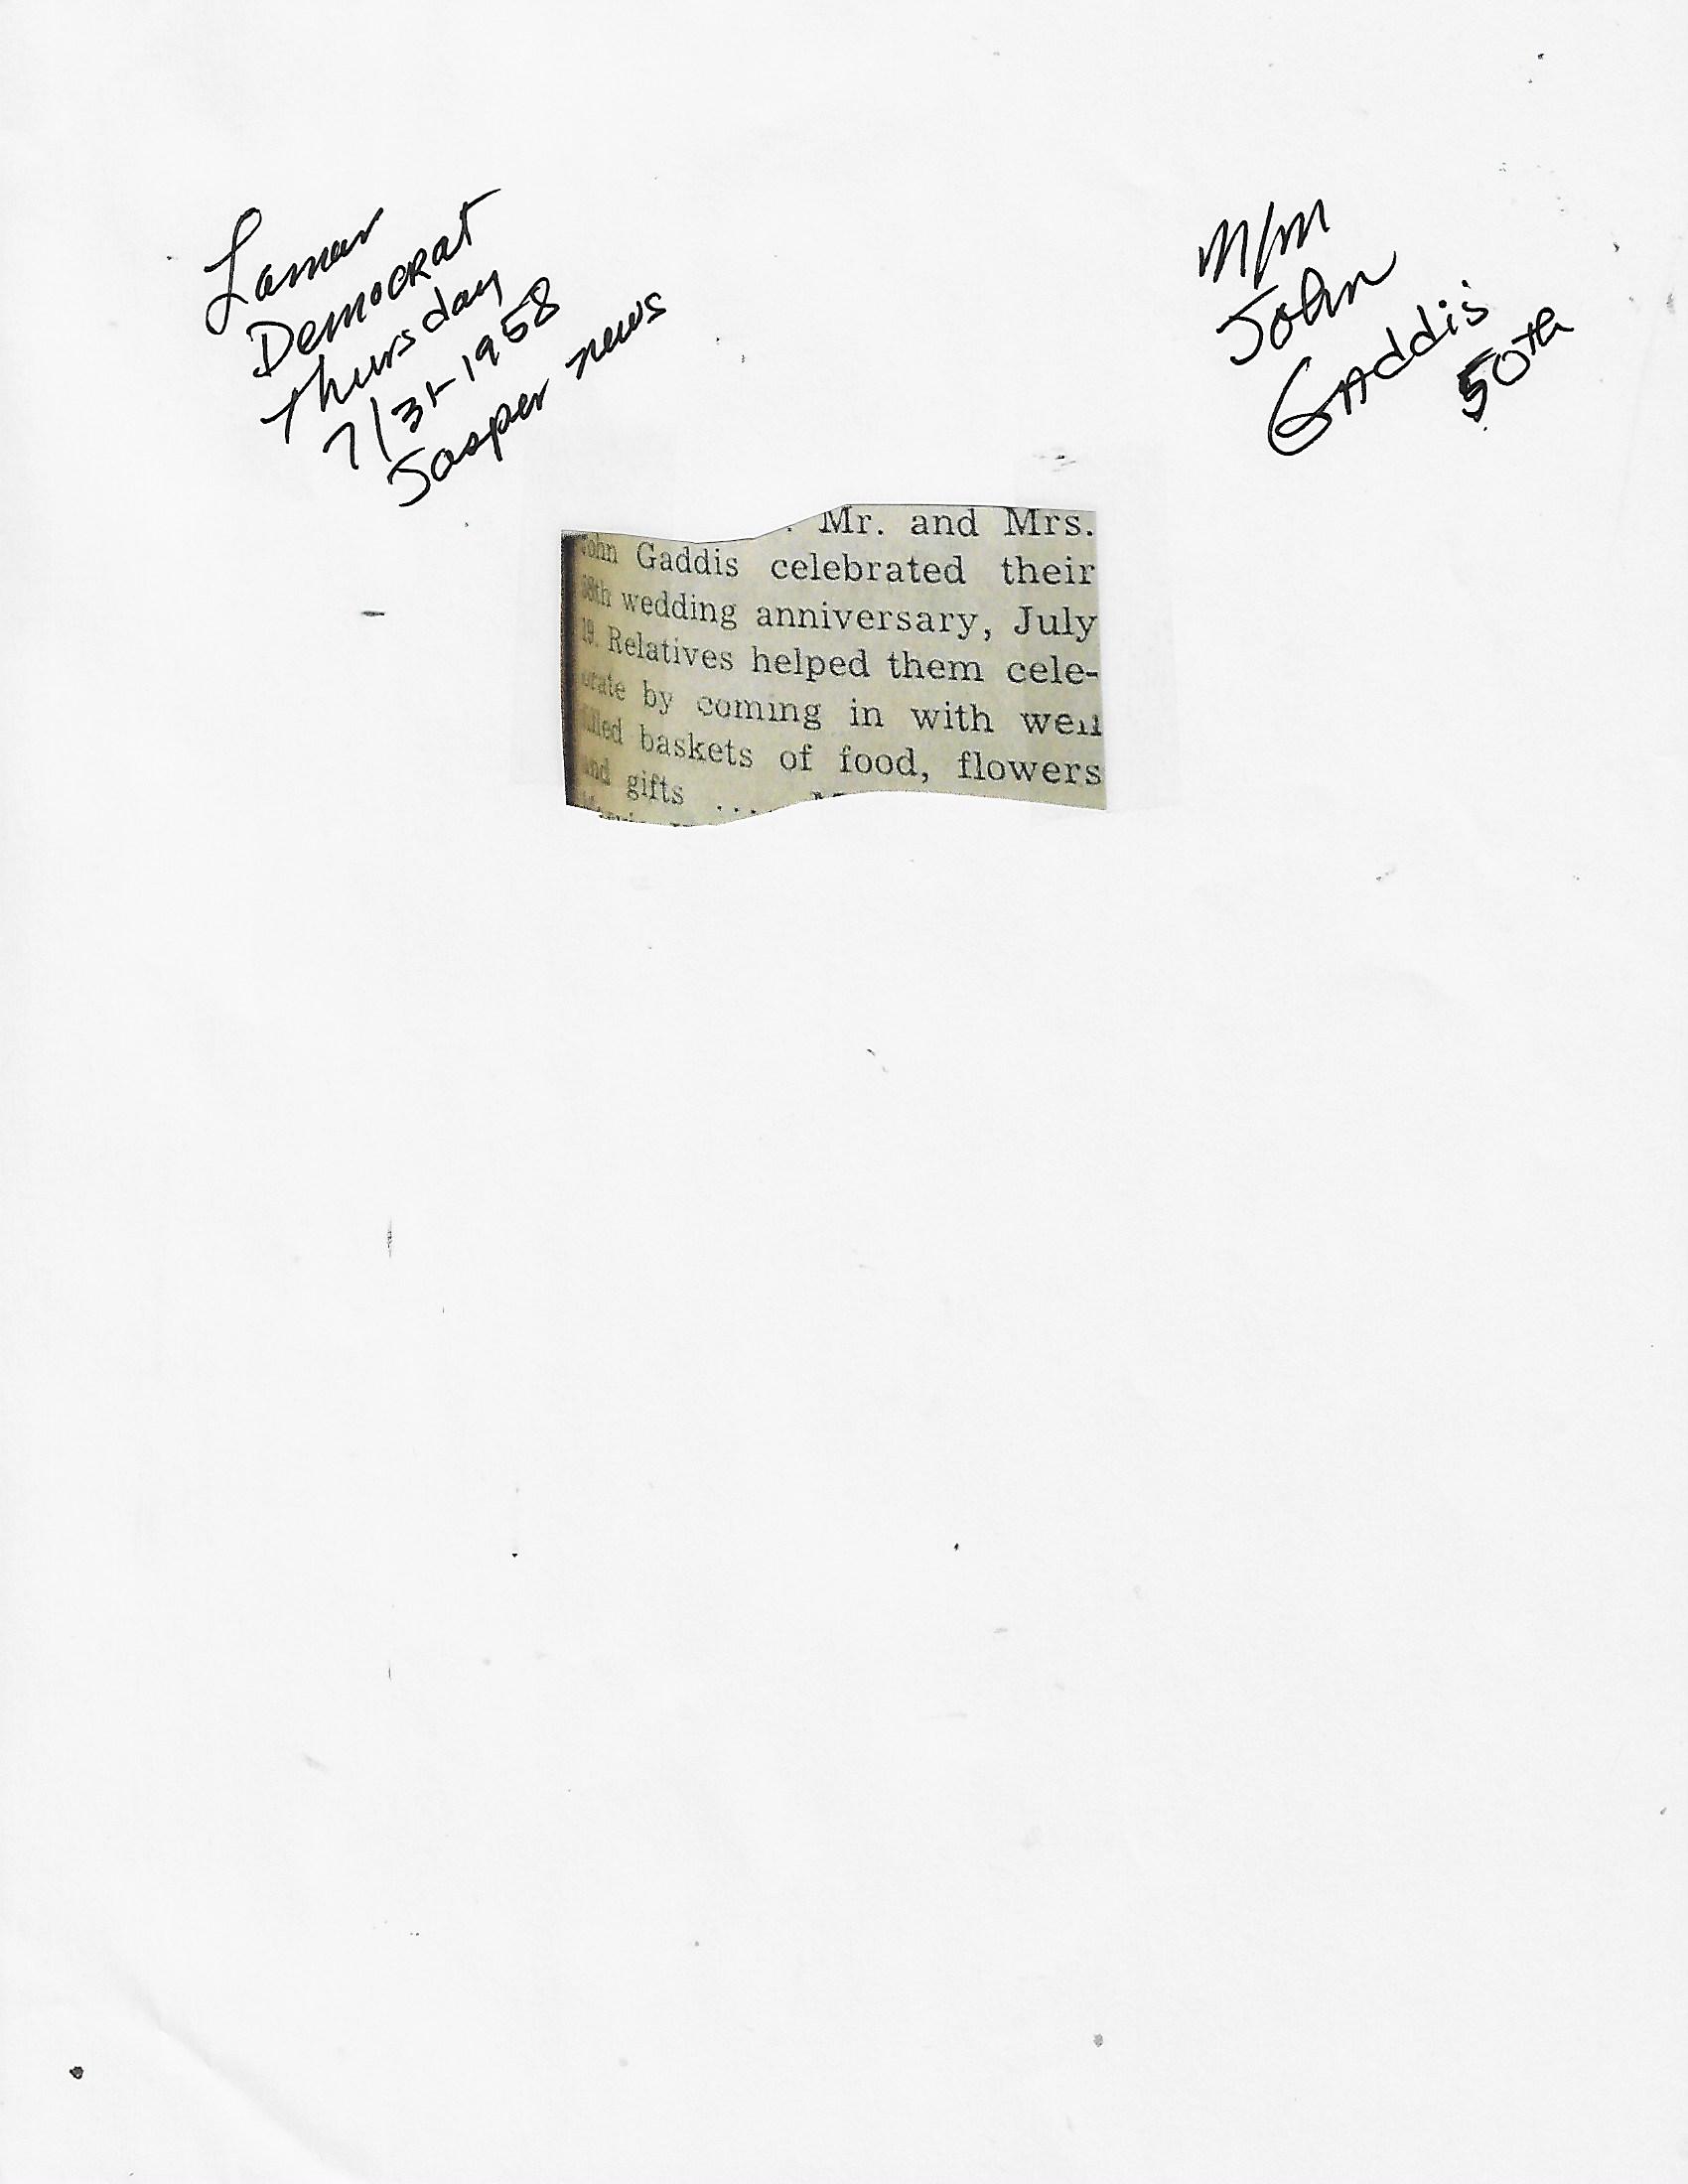 Lamar
Democrat
Thursday
7/31-1958
Jasper news
M/M
John
Gaddis
50th
. Mr. and Mrs.
John Gaddis celebrated their
wedding anniversary, July
19. Relatives helped them cele-
brate by coming in with well
filled baskets of food, flowers
and gifts ....